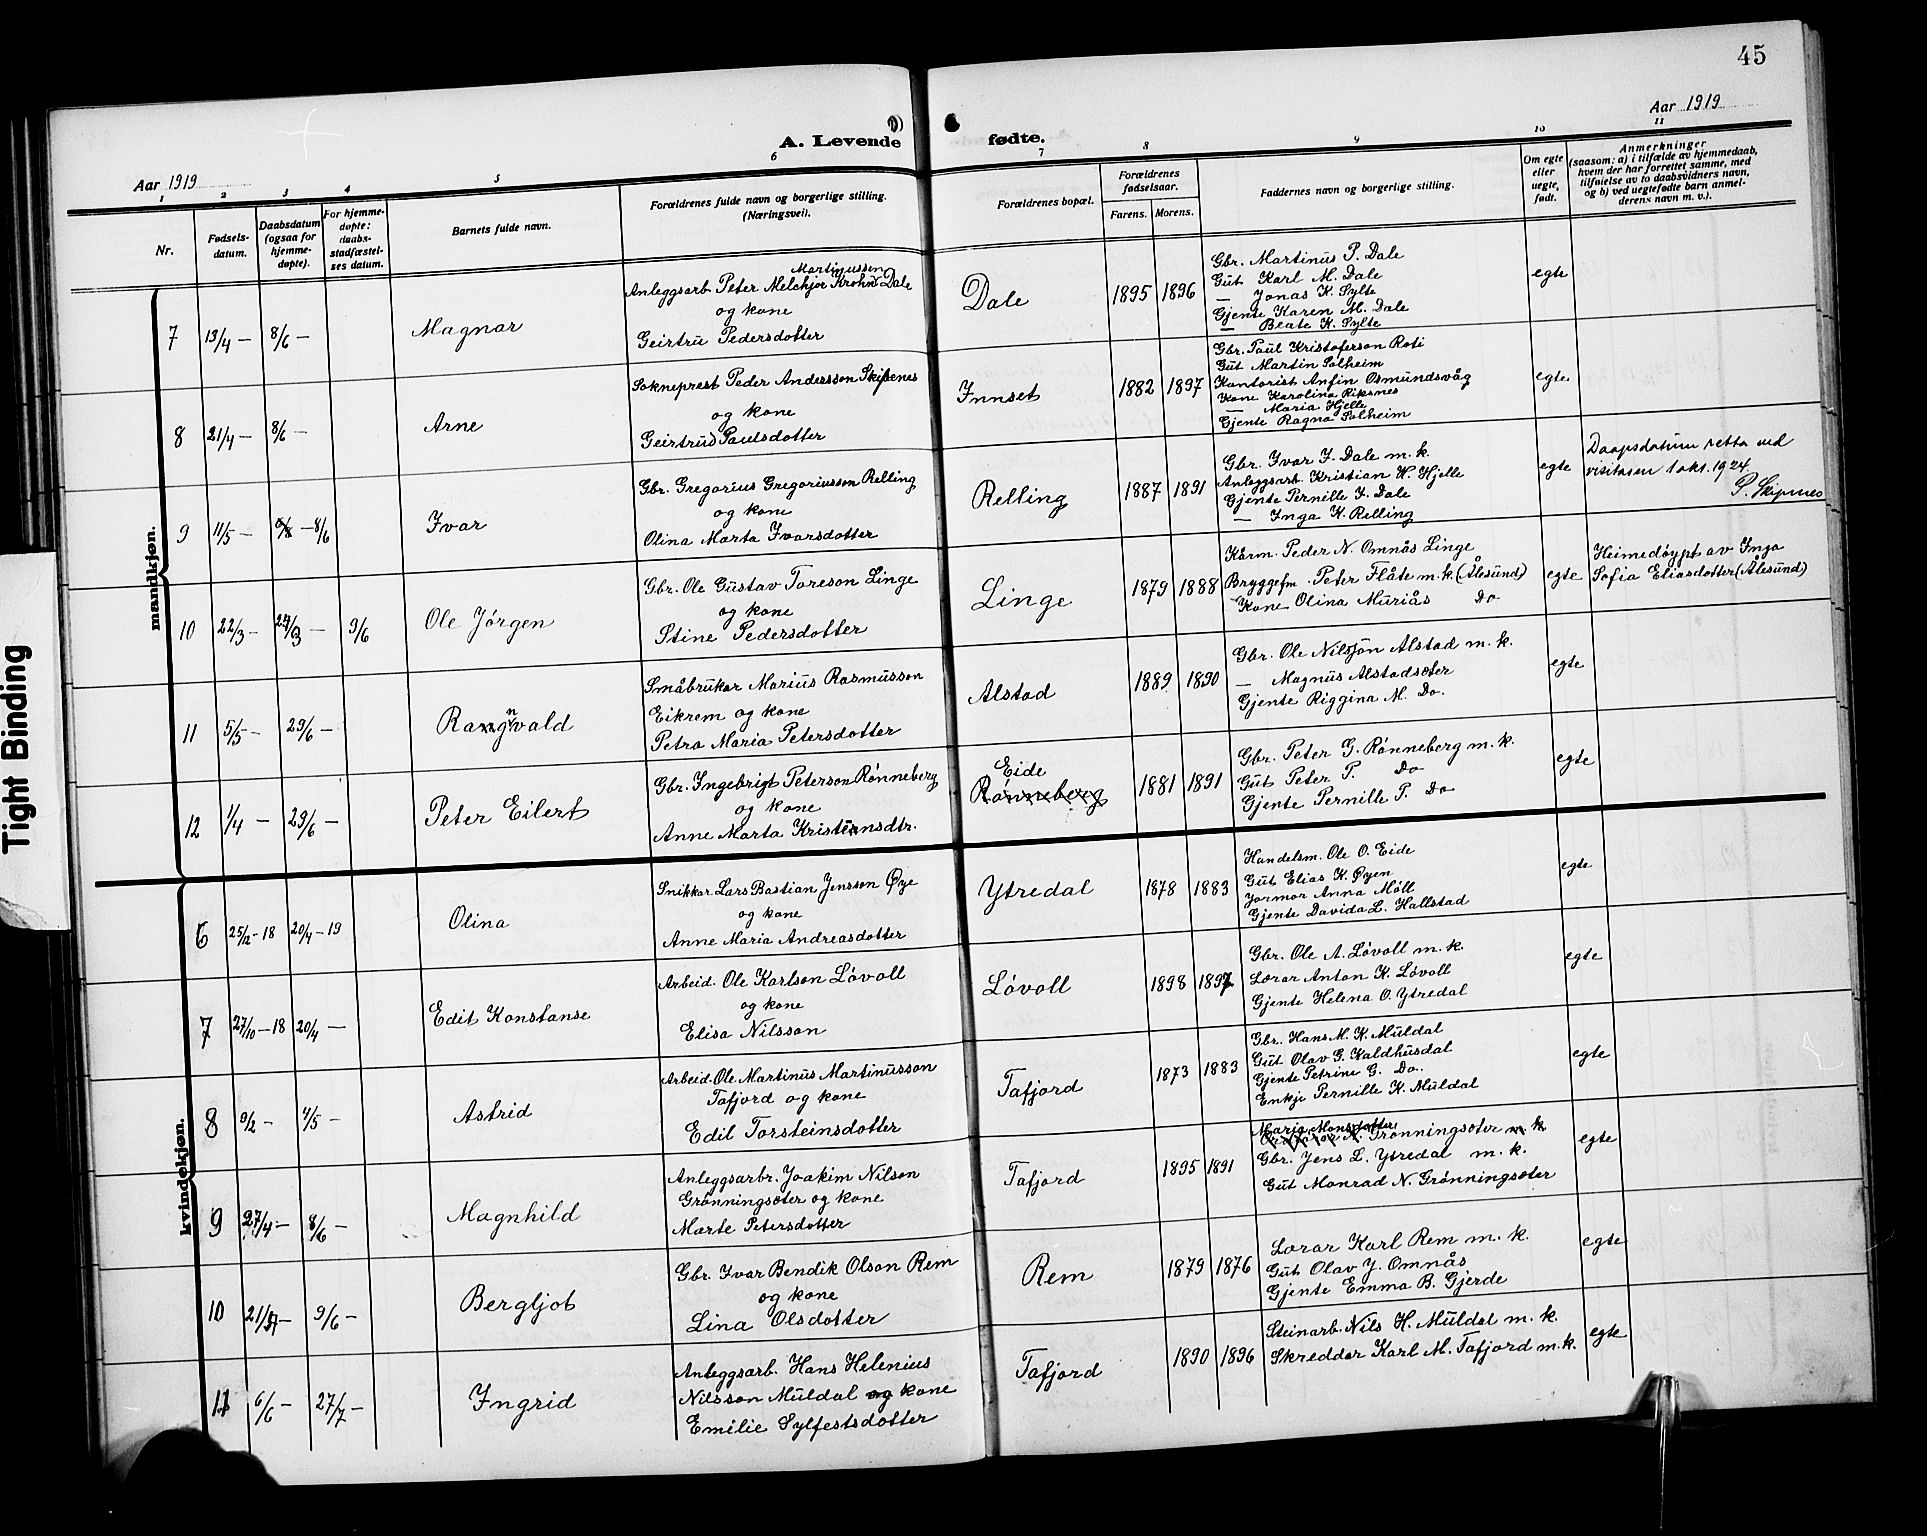 45
A. Levende
fødte.
Aar 1919
Aar 1919
1 2 3 4 5 6 7 8 9 10 11
Nr.
Fødsels-
datum.
Daabsdatum
(ogsaa for
hjemme-
døpte).
For hjemme-
døpte:
daabs-
stadfæstel-
ses datum.
Barnets fulde navn.
Forældrenes fulde navn og borgerlige stilling.
(Næringsvei).
Forældrenes bopæl.
Forældrenes
fødselsaar.
Farens. Morens.
Faddernes navn og borgerlige stilling.
Om egte
eller
uegte,
født.
Anmerkninger
(saasom: a) i tilfælde av hjemmedaab,
hvem der har forrettet samme, med
tilføielse av to daabsvidners navn,
og b) ved uegtefødte barn anmel-
derens navn m. v.).
mandkjøn.
7 13/4 — 8/6 — Magnar
Martinussen
Anleggsarb. Peter Melchjor Krohn Dale
og kone
Geirtru Pedersdotter
Dale 1895 1896
Gbr. Martinus P. Dale
Gut Karl M. Dale
— Jonas K. Sylte
Gjente Karen M. Dale
— Beate K. Sylte
egte
8 21/4 — 8/6 — Arne
Sokneprest Peder Andersson Skipenes
og kone
Geirtrud Paulsdotter
Innset 1882 1897
Gbr. Paul Kristoferson Roti
Gut Martin Solheim
Kantorist Anfin Osmundsvåg
Kone Karolina Riksnes
— Maria Hjelle
Gjente Ragna Solheim
egte
9 11/5 — 8/6 Ivar
Gbr. Gregorius Gregoriusson Relling
og kone
Olina Marta Ivarsdotter
Relling 1887 1891
Gbr. Ivar I. Dale m. k.
Anleggsarb. Kristian K. Hjelle
Gjente Pernille I. Dale
— Inga K. Relling
egte
Daapsdatum retta ved
visitasen 1 okt. 1924.
P. Skipnes
10 22/3 — 24/3 — 9/6 Ole Jørgen
Gbr. Ole Gustav Toreson Linge
og kone
Stine Pedersdotter
Linge 1879 1888
Kårm. Peder N. Omnås Linge
Bryggefm. Peter Flåte m.k. (Ålesund)
Kone Olina Muriås Do
egte
Heimedøypt av Inga
Sofia Eliasdotter (Ålesund)
11 5/5 — 29/6 — Ragnvald
Småbrukar Marius Rasmusson
Eikrem og kone
Petra Maria Petersdotter
Alstad 1889 1890
Gbr. Ole Nilsson Alstad m. k.
— Magnus Alstadsæter
Gjente Riggina M. Do.
egte
12 1/4 — 29/6 — Peter Eilert
Gbr. Ingebrigt Peterson Rønneberg
og kone
Anne Marta Kristensdtr.
Eide
Rønneberg
1881 1891
Gbr. Peter G. Rønneberg m. k.
Gut Peter P. Do
Gjente Pernille P. Do
egte
kvindekjøn.
6 25/12 – 18 20/4 – 19 Olina
Snikkar Lars Bastian Jensson Øye
og kone
Anne Maria Andreasdotter
Ytredal 1878 1883
Handelsm. Ole O. Eide
Gut Elias K. Øyen
Jormor Anna Moll
Gjente Davida L. Hallstad
egte
7 27/10 – 18 20/4 — Edit Konstanse
Arbeid. Ole Karlson Løvoll
og kone
Elisa Nilsson
Løvoll 1898 1897
Gbr. Ole A. Løvoll m. k.
Lærar Anton K. Løvoll
Gjente Helena O. Ytredal
egte
8 9/2 — 4/5 — Astrid
Arbeid. Ole Martinus Martinusson
Tafjord og kone
Edil Torsteinsdotter
Tafjord 1873 1883
Gbr. Hans M. K. Muldal
Gut Olav G. Kaldhusdal
Gjente Petrine G. Do.
Enkje Pernille K. Muldal
egte
9 27/4 — 8/6 — Magnhild
Anleggsarbr. Joakim Nilson
Grønningsæter og kone
Marte Petersdotter
Tafjord 1895 1891
Maria Monsdotter
Grønningsæter m k
Gbr. Jens L. Ytredal m. k.
Gut Monrad N. Grønningsæter
egte
10 9/6 — Bergljot
Gbr. Ivar Bendik Olson Rem
og kone
Lina Olsdotter
Rem 1879 1876
Lærar Karl Rem m. k.
Gut Olav J. Omnås
Gjente Emma B. Gjerde
egte
11 6/6 — 27/7 — Ingrid
Anleggsarb. Hans Helenius
Nilsson Muldal og kone
Emilie Sylfestsdotter
Tafjord 1890 1896
Steinarb. Nils H. Muldal m. k.
Skreddar Karl M. Tafjord m.k.
egte
Tight Binding